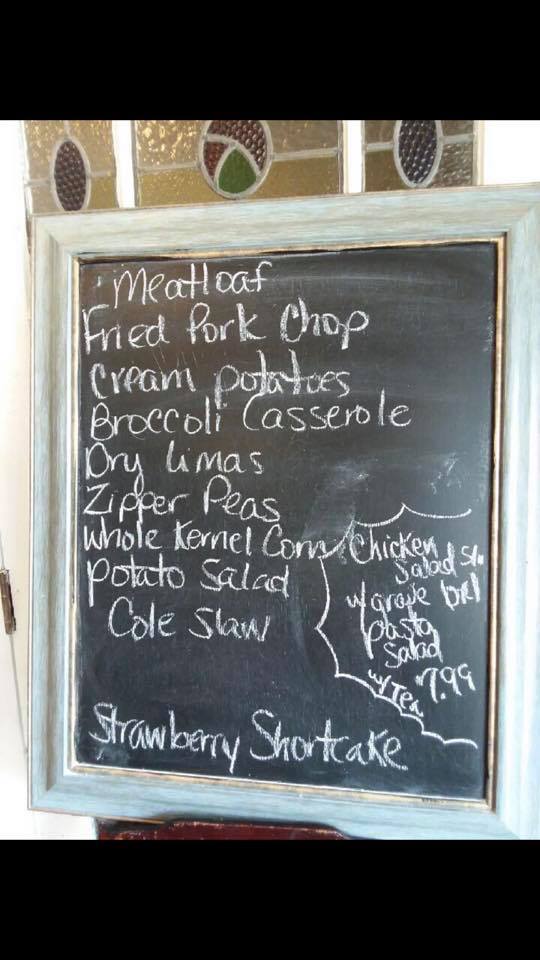 Meatloaf
Fried Pork Chop
Cream potatoes
Broccoli Casserole
Dry Limas
Zipper Peas
Whole Kernel Corn
potato salad
Cole Slaw
Chicken
Salad
w/ grape
pasta
salad
$7.99
w/ Tea
Strawberry Shortcake